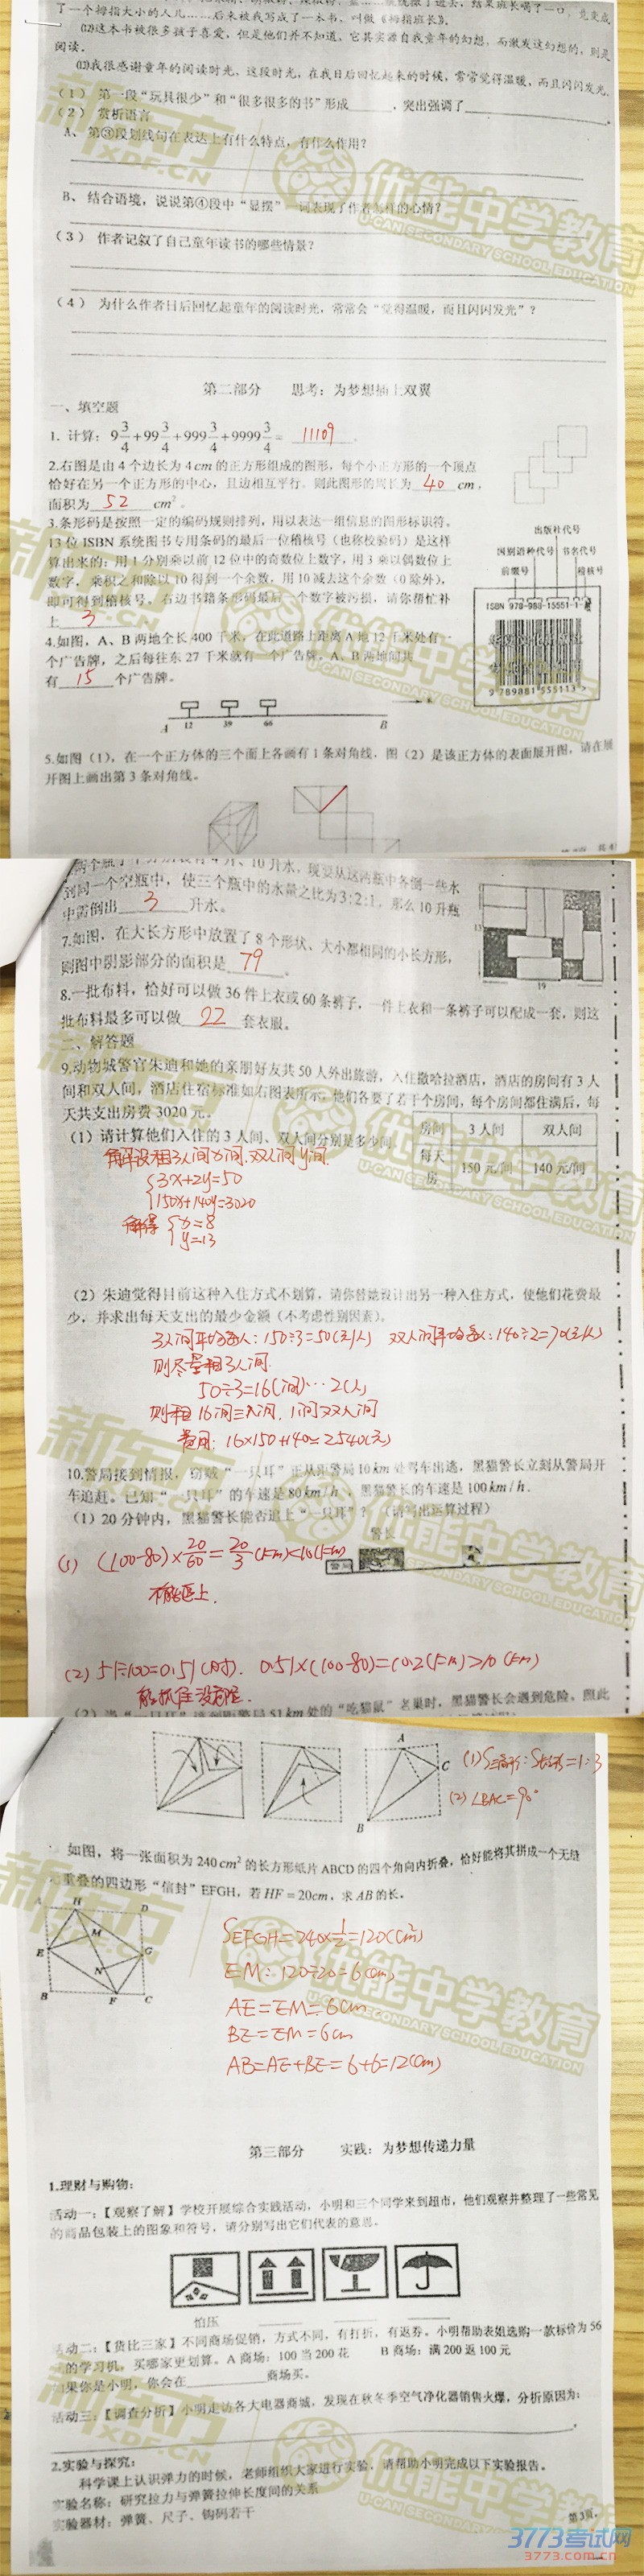 了一个拇指大小的人儿……后来被我写成了一本书，叫做《拇指班长》。
⑿这本书被很多孩子喜爱，但是他们并不知道，它其实源自我童年的幻想，而激发这幻想的，则是
阅读。
⒀我很感谢童年的阅读时光，这段时光，在我日后回忆起来的时候，常常觉得温暖，而且闪闪发光。
（1） 第一段“玩具很少”和“很多很多的书”形成，突出强调了。
（2） 赏析语言
A、 第③段划线句在表达上有什么特点，有什么作用？
B、 结合语境，说说第④段中“显摆”一词表现了作者怎样的心情？
（3） 作者记叙了自己童年读书的哪些情景？
（4） 为什么作者日后回忆起童年的阅读时光，常常会“觉得温暖，而且闪闪发光”？
第二部分 思考：为梦想插上双翼
一、填空题
1. 计算：9 3/4 + 99 3/4 + 999 3/4 + 9999 3/4 = 11109。
2.右图是由 4 个边长为 4cm 的正方形组成的图形，每个小正方形的一个顶点
恰好在另一个正方形的中心，且边相互平行。则此图形的周长为 40 cm，
面积为 52 cm²。
3.条形码是按照一定的编码规则排列，用以表达一组信息的图形标识符。
13 位 ISBN 系统图书专用条码的最后一位稽核号（也称校验码）是这样
算出来的：用 1 分别乘以前 12 位中的奇数位上数字，用 3 乘以偶数位上
数字，乘积之和除以 10 得到一个余数，用 10 减去这个余数（0 除外），
即可得到稽核号。右边书籍条形码最后一个数字被污损，请你帮忙补
上 3
出版社代号
国别语种代号 书名代号
前缀号 稽核号
ISBN 978-988-15551-1-
9 789881 555113 >
4.如图，A、B 两地全长 400 千米，在此道路上距离 A 地 12 千米处有一
个广告牌，之后每往东 27 千米就有一个广告牌，A、B 两地间共
有 15 个广告牌。
A 12 39 66 B
5.如图（1），在一个正方体的三个面上各画有 1 条对角线．图（2）是该正方体的表面展开图，请在展
开图上画出第 3 条对角线。
到同一个空瓶中，使三个瓶中的水量之比为 3:2:1，那么 10 升瓶
中需倒出 3 升水。
7.如图，在大长方形中放置了 8 个形状、大小都相同的小长方形，
则图中阴影部分的面积是 79。
13
19
8.一批布料，恰好可以做 36 件上衣或 60 条裤子，一件上衣和一条裤子可以配成一套，则这
批布料最多可以做 22 套衣服。
二、解答题
9.动物城警官朱迪和她的亲朋好友共 50 人外出旅游，入住撒哈拉酒店，酒店的房间有 3 人
间和双人间，酒店住宿标准如右图表所示。他们各要了若干个房间，每个房间都住满后，每
天共支出房费 3020 元。
房间 3 人间 双人间
每天房 150 元/间 140 元/间
（1）请计算他们入住的 3 人间、双人间分别是多少间
解:设租3人间x间.双人间y间.
3x+2y=50
150x+140y=3020
解得 x=8
y=13
（2）朱迪觉得目前这种入住方式不划算，请你替她设计出另一种入住方式，使他们花费最
少，并求出每天支出的最少金额（不考虑性别因素）。
3人间平均每人：150÷3=50(元/人) 双人间平均每人：140÷2=70(元/人)
则尽量租3人间.
50÷3=16(间)…2(人)
则租16间三人间，1间双人间
费用：16×150+140=2540(元)
10.警局接到情报，窃贼“一只耳”正从距警局 10km 处驾车出逃，黑猫警长立刻从警局开
车追赶。已知“一只耳”的车速是 80km/h，黑猫警长的车速是 100km/h．
（1）20 分钟内，黑猫警长能否追上“一只耳”？（请写出运算过程）
警长
警局
(1) (100-80)×20/60=20/3(km)<10(km)
不能追上.
(2) 51÷100=0.51(时). 0.51×(100-80)=10.2(km)>10(km)
能抓住没危险.
A
C
B
(1) S三角形:S长方形=1:3
(2) ∠BAC=90°
如图，将一张面积为 240cm² 的长方形纸片 ABCD 的四个角向内折叠，恰好能将其拼成一个无缝
无重叠的四边形“信封”EFGH，若 HF=20cm，求 AB 的长。
A H D
M
E G
N
B F C
SEFGH=240×1/2=120(cm²)
EM：120÷20=6(cm)
AE=EM=6cm
BE=EM=6cm
AB=AE+BE=6+6=12(cm)
第三部分 实践：为梦想传递力量
1.理财与购物：
活动一：【观察了解】学校开展综合实践活动，小明和三个同学来到超市，他们观察并整理了一些常见
的商品包装上的图象和符号，请分别写出它们代表的意思。
怕压
活动二：【货比三家】不同商场促销，方式不同，有打折，有返券。小明帮助表姐选购一款标价为 56
的学习机，买哪家更划算。A 商场：100 当 200 花 B 商场：满 200 返 100 元
如果你是小明，你会在 商场买。
活动三：【调查分析】小明走访各大电器商城，发现在秋冬季空气净化器销售火爆，分析原因为：
2.实验与探究：
科学课上认识弹力的时候，老师组织大家进行实验，请帮助小明完成以下实验报告。
实验名称：研究拉力与弹簧拉伸长度间的关系
实验器材：弹簧、尺子、钩码若干
第 3 页，
新东方 XDF.CN
优能中学教育
U-CAN SECONDARY SCHOOL EDUCATION
3773考试网
3773.com.cn